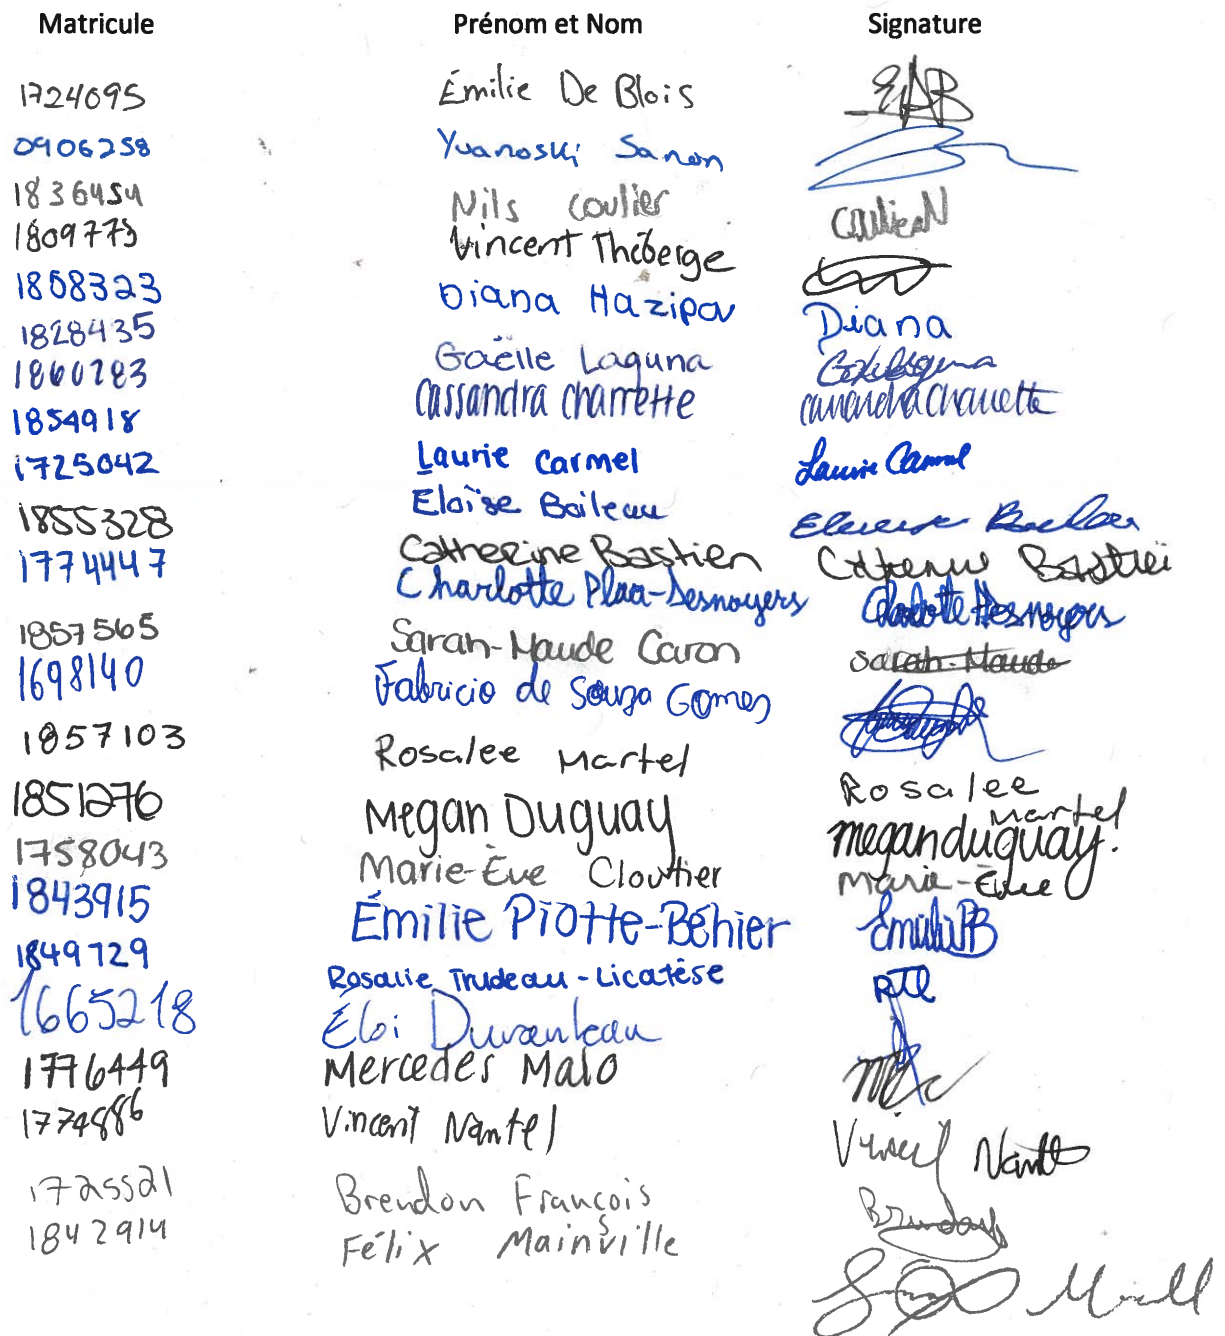 Matricule Prénom et Nom Signature
1724095 Émilie De Blois EAB
0906258 Yvanoski Sanon
1836454 Nils Coulier CoulierN
1809773 Vincent Théberge
1808323 Diana Hazipov Diana
1828435 Gaëlle Laguna
1860283 Cassandra Charrette Cassandra Charrette
1854918
1725042 Laurie Carmel Laurie Carmel
1855328 Eloïse Boileau
1774447 Catherine Bastien Catherine Bastien
Charlotte Plaa-Desnoyers Charlotte Desnoyers
1857565 Sarah-Maude Caron Sarah-Maude
1698140 Fabricio de Souza Gomes
1857103 Rosalee Martel Rosalee Martel
1851276 Megan Duguay meganduguay.
1758043 Marie-Ève Cloutier Marie-Ève
1843915 Émilie Piotte-Béhier EmiliePB
1849729 Rosalie Trudeau-Licatèse RTL
1665218 Éloi Duranleau
1776449 Mercedes Malo
1774886 Vincent Nantel Vincent Nantel
1725521 Brendon François
1842914 Félix Mainsville